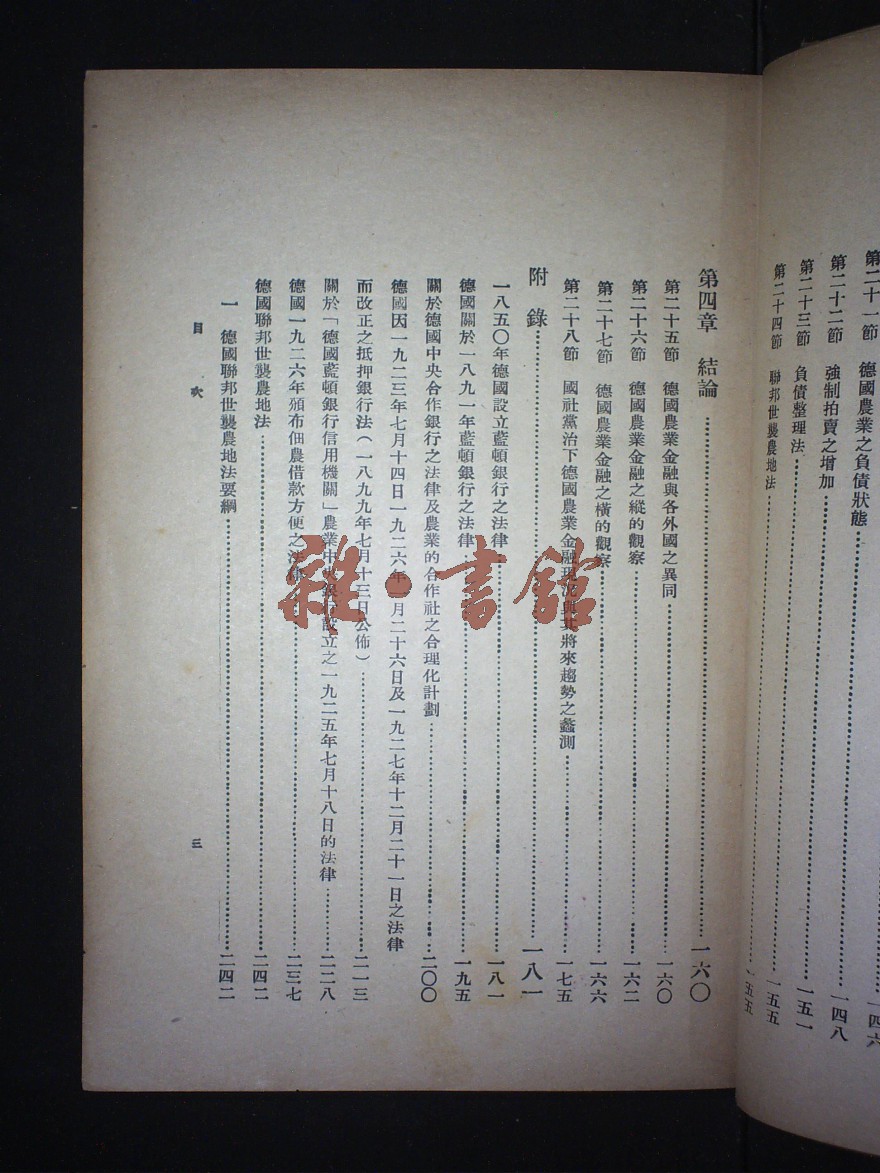 第二十一節　德國農業之負債狀態……一四六
第二十二節　強制拍賣之增加……一四八
第二十三節　負債整理法……一五一
第二十四節　聯邦世襲農地法……一五五
一五五
第四章　結論……一六〇
第二十五節　德國農業金融與各外國之異同……一六〇
第二十六節　德國農業金融之縱的觀察……一六二
第二十七節　德國農業金融之橫的觀察……一六六
第二十八節　國社黨治下德國農業金融現況與其將來趨勢之蠡測……一七五
附　錄……一八一
一八五〇年德國設立藍頓銀行之法律……一八一
德國關於一八九一年藍頓銀行之法律……一九五
關於德國中央合作銀行之法律及農業的合作社之合理化計劃……二〇〇
德國因一九二三年七月十四日一九二六年一月二十六日及一九二七年十二月二十一日之法律
而改正之抵押銀行法（一八九九年七月十三日公佈）……二一三
關於「德國藍頓銀行信用機關」農業中央銀行設立之一九二五年七月十八日的法律……二二八
德國一九二六年頒布佃農借款方便之法律……二三七
德國聯邦世襲農地法……二四二
一　德國聯邦世襲農地法要綱……二四二
目　次
三
雜·書館